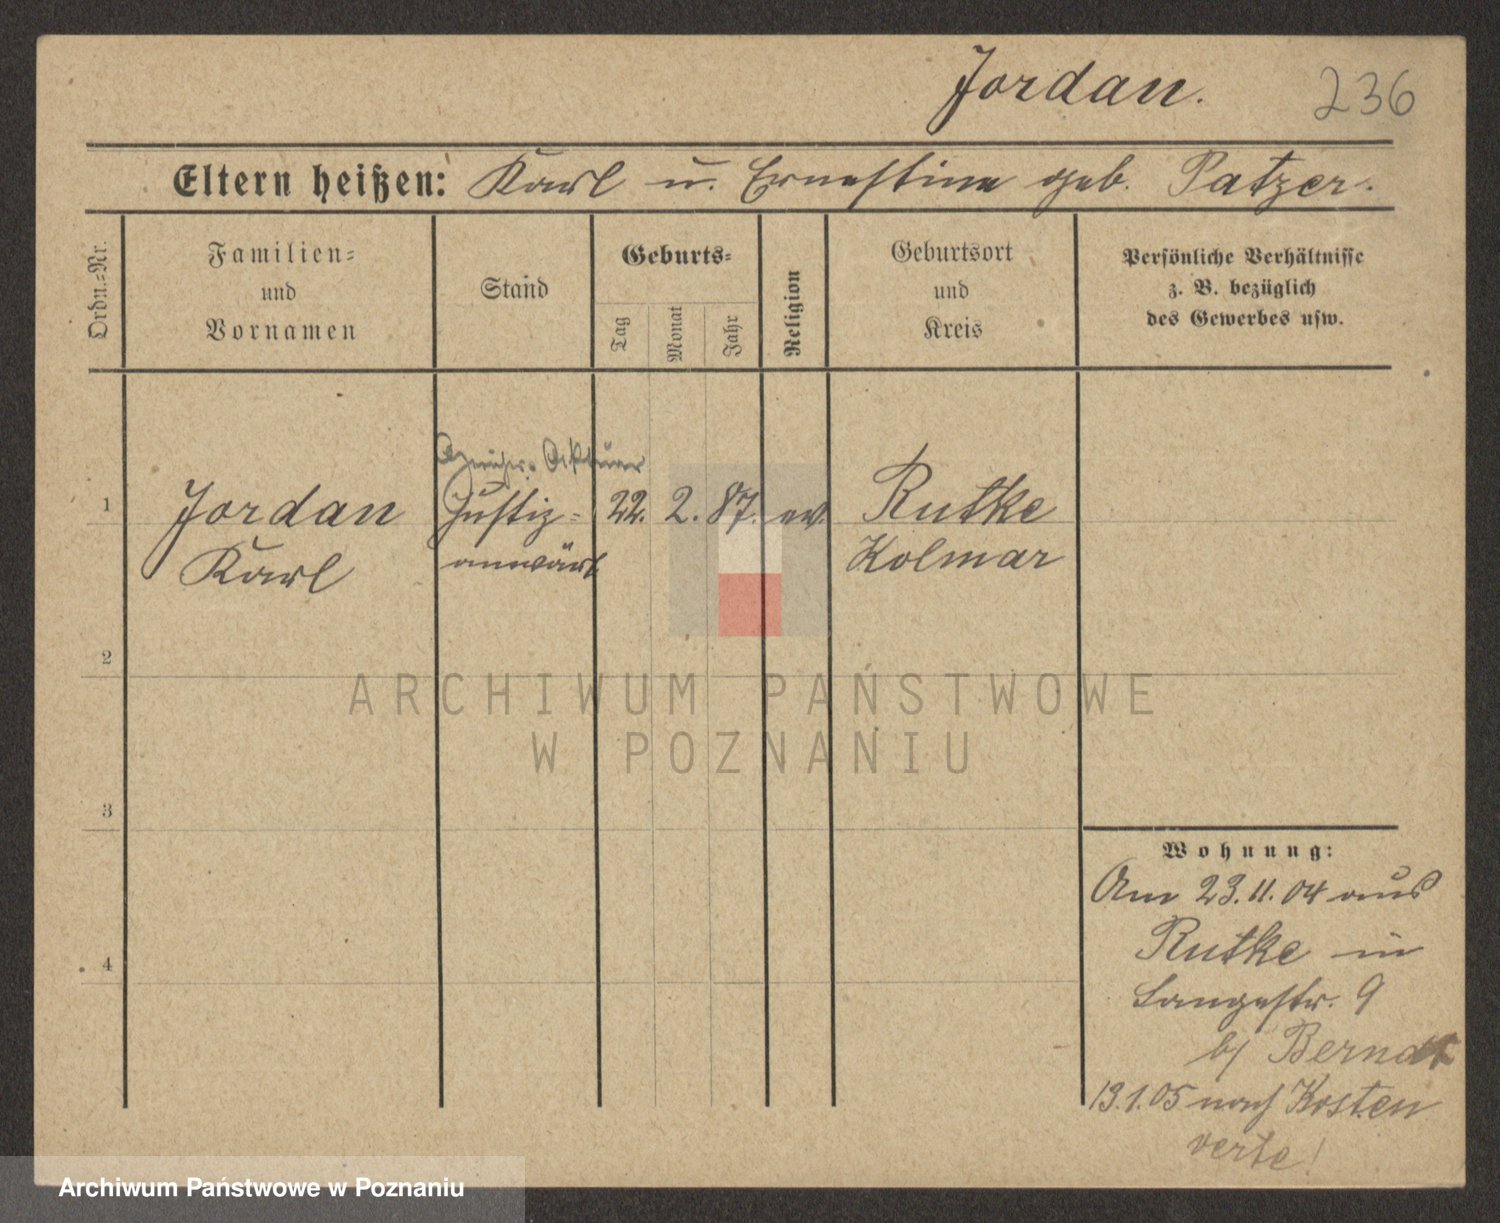 Jordan.
236
Eltern heißen: Karl u. Ernestine geb. Patzer.
Ordn.-Nr.
Familien-
und
Vornamen
Stand
Geburts-
Tag
Monat
Jahr
Religion
Geburtsort
und
Kreis
Persönliche Verhältnisse
z. B. bezüglich
des Gewerbes usw.
1
Jordan
Karl
Aktuar
Justiz-
anwärt
22. 2. 87. ev.
Rutke
Kolmar
2
3
4
Wohnung:
Am 23.11.04 aus
Rutke in
Langestr. 9
b/ Berndt
13.1.05 nach Kosten
verte!
ARCHIWUM PAŃSTWOWE
W POZNANIU
Archiwum Państwowe w Poznaniu